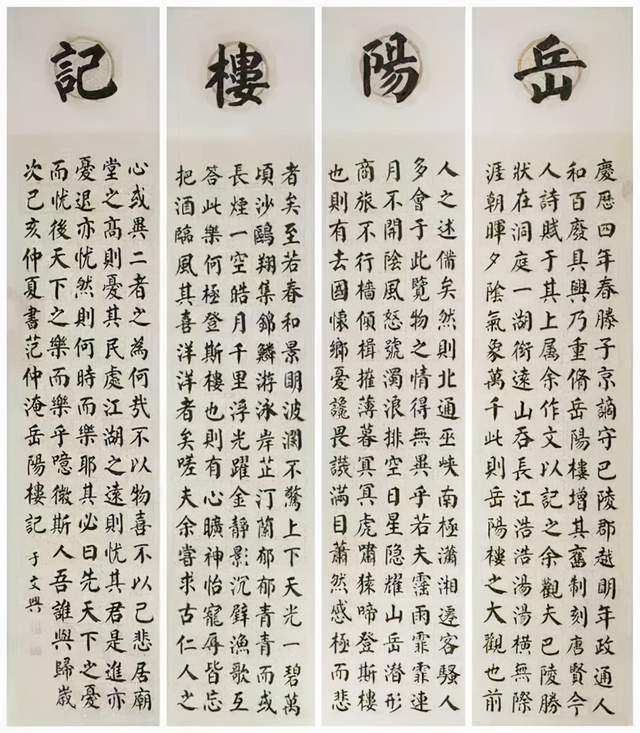 岳
慶厯四年春滕子京謫守巴陵郡越明年政通人
和百廢具興乃重脩岳陽樓增其舊制刻唐賢今
人詩賦于其上属余作文以記之余觀夫巴陵勝
狀在洞庭一湖銜遠山吞長江浩浩湯湯橫無際
涯朝暉夕陰氣象萬千此則岳陽樓之大觀也前
陽
人之述備矣然則北通巫峽南極瀟湘遷客騷人
多會于此覽物之情得無異乎若夫霪雨霏霏連
月不開陰風怒號濁浪排空日星隐耀山岳潛形
商旅不行檣傾楫摧薄暮冥冥虎嘯猿啼登斯樓
也則有去國懷鄉憂讒畏譏滿目蕭然感極而悲
樓
者矣至若春和景明波瀾不驚上下天光一碧萬
頃沙鷗翔集錦鱗游泳岸芷汀蘭郁郁青青而或
長煙一空皓月千里浮光躍金靜影沉璧漁歌互
答此樂何極登斯樓也則有心曠神怡寵辱皆忘
把酒臨風其喜洋洋者矣嗟夫余嘗求古仁人之
記
心或異二者之為何哉不以物喜不以己悲居廟
堂之高則憂其民處江湖之遠則忧其君是進亦
憂退亦忧然則何時而樂耶其必曰先天下之憂
而忧後天下之樂而樂乎噫微斯人吾誰與歸歲
次己亥仲夏書范仲淹岳陽樓記 于文興